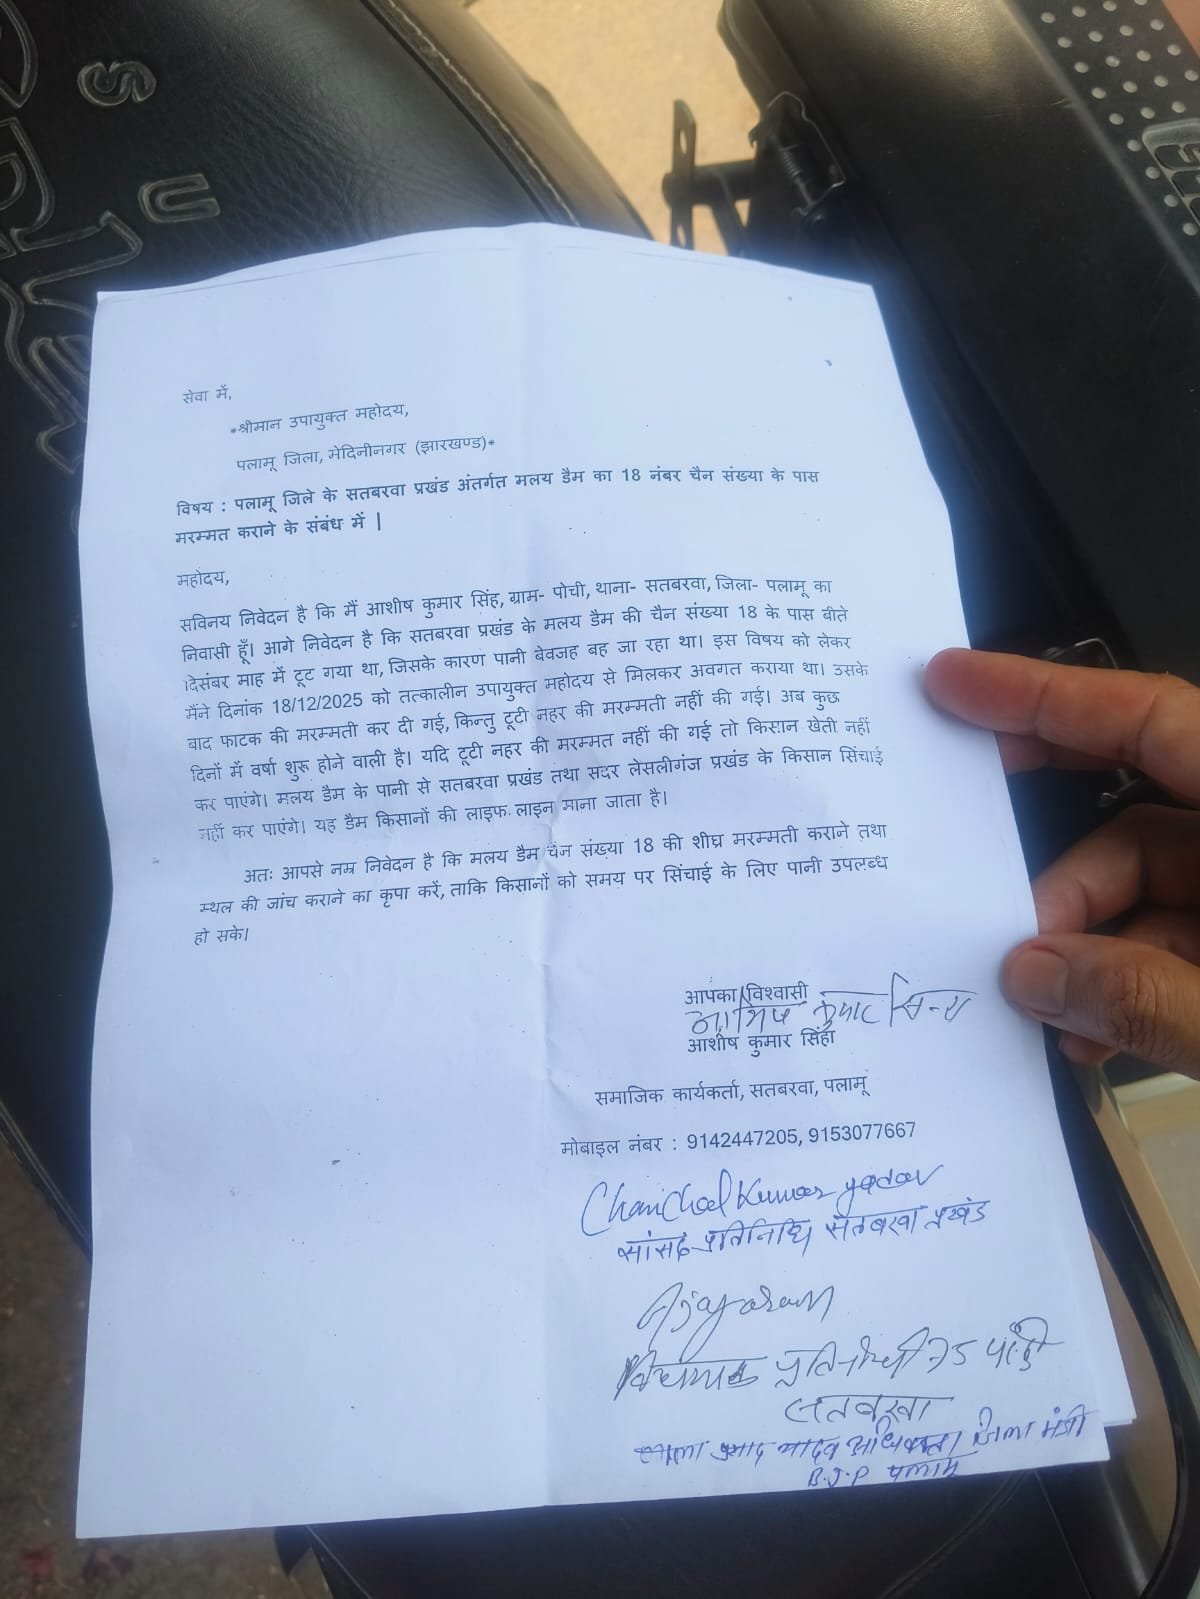 सेवा में,
*श्रीमान उपायुक्त महोदय,
पलामू जिला, मेदिनीनगर (झारखण्ड)*
विषय : पलामू जिले के सतबरवा प्रखंड अंतर्गत मलय डैम का 18 नंबर चैन संख्या के पास
मरम्मत कराने के संबंध में |
महोदय,
सविनय निवेदन है कि मैं आशीष कुमार सिंह, ग्राम- पोची, थाना- सतबरवा, जिला- पलामू का
निवासी हूँ। आगे निवेदन है कि सतबरवा प्रखंड के मलय डैम की चैन संख्या 18 के पास बीते
दिसंबर माह में टूट गया था, जिसके कारण पानी बेवजह बह जा रहा था। इस विषय को लेकर
मैंने दिनांक 18/12/2025 को तत्कालीन उपायुक्त महोदय से मिलकर अवगत कराया था। उसके
बाद फाटक की मरम्मती कर दी गई, किन्तु टूटी नहर की मरम्मती नहीं की गई। अब कुछ
दिनों में वर्षा शुरू होने वाली है। यदि टूटी नहर की मरम्मत नहीं की गई तो किसान खेती नहीं
कर पाएंगे। मलय डैम के पानी से सतबरवा प्रखंड तथा सदर लेसलीगंज प्रखंड के किसान सिंचाई
नहीं कर पाएंगे। यह डैम किसानों की लाइफ लाइन माना जाता है।
अतः आपसे नम्र निवेदन है कि मलय डैम चैन संख्या 18 की शीघ्र मरम्मती कराने तथा
स्थल की जांच कराने का कृपा करें, ताकि किसानों को समय पर सिंचाई के लिए पानी उपलब्ध
हो सके।
आपका विश्वासी
आशीष कुमार सिन्हा
आशीष कुमार सिंहा
समाजिक कार्यकर्ता, सतबरवा, पलामू
मोबाइल नंबर : 9142447205, 9153077667
Chanchal Kumar yadav
सांसद प्रतिनिधि सतबरवा प्रखंड
Ajay ram
विधायक प्रतिनिधी
सतबरवा
प्रसाद यादव अधिवक्ता जिला मंत्री
B.J.P पलामू